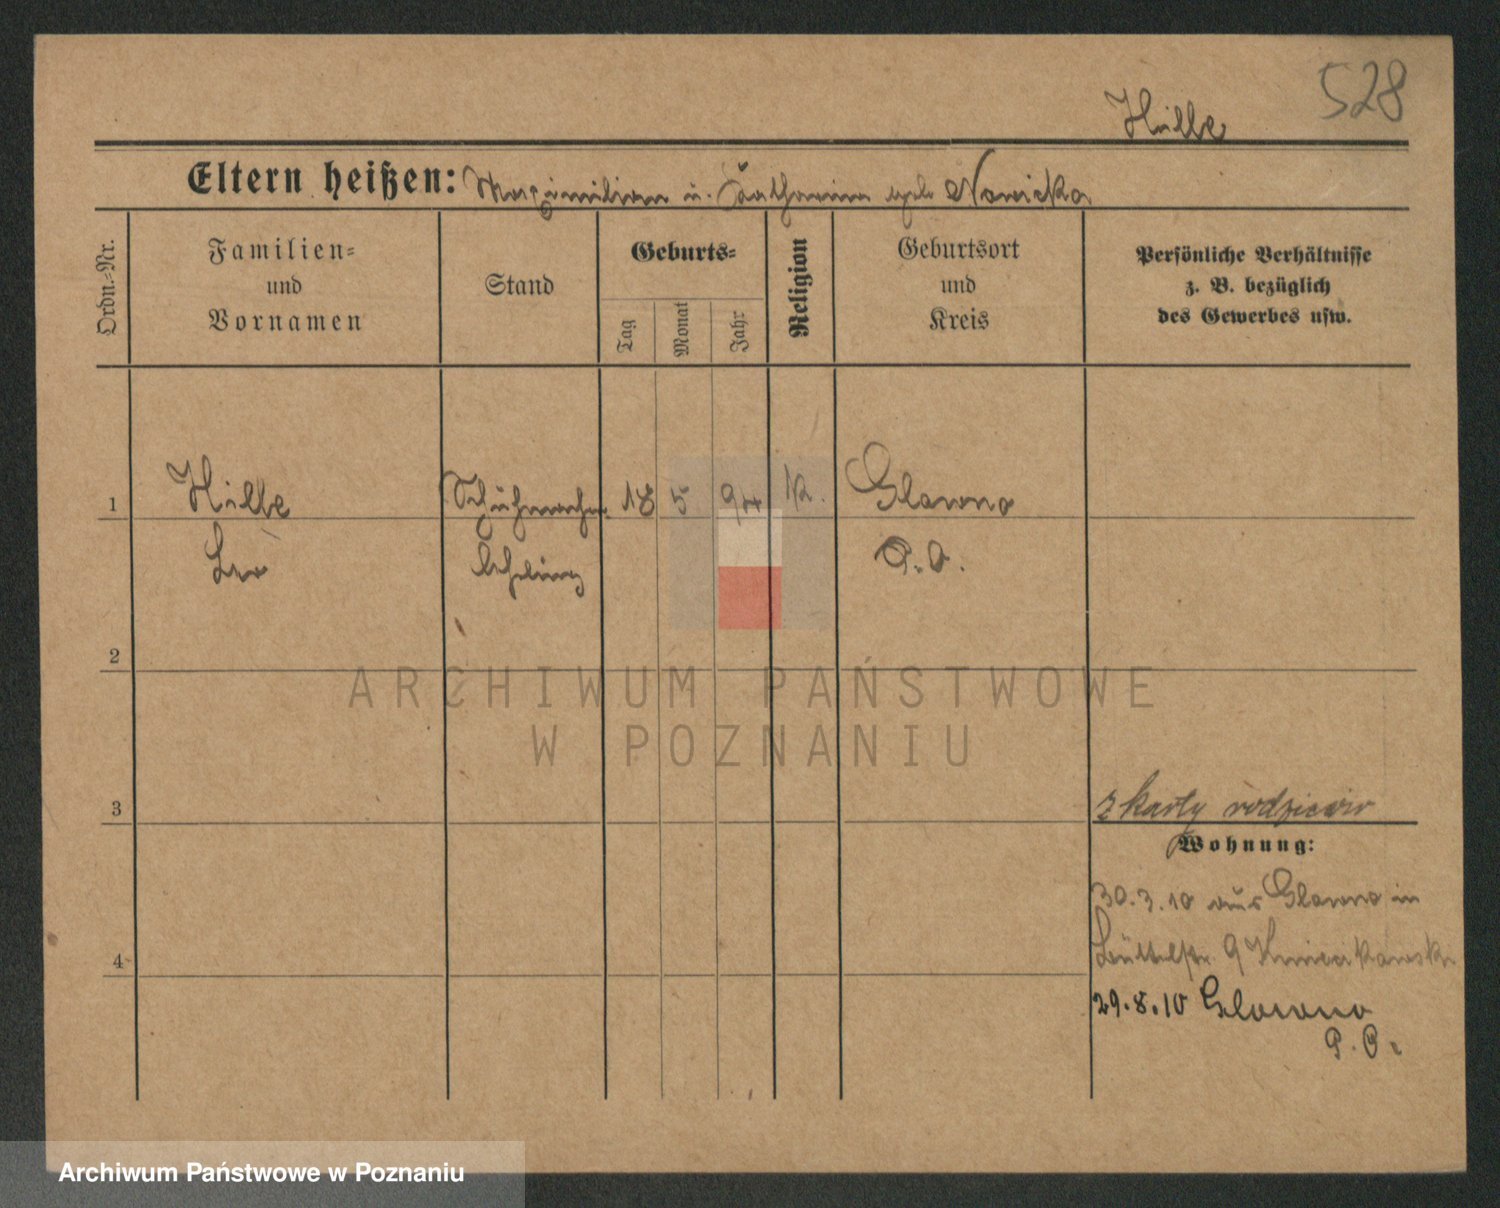 528
Hilbe
Eltern heißen: Maximilian u. Katharina geb. Nowicka
Ordn.-Nr.
Familien-
und
Vornamen
Stand
Geburts-
Tag
Monat
Jahr
Religion
Geburtsort
und
Kreis
Persönliche Verhältnisse
z. B. bezüglich
des Gewerbes usw.
1
Hilbe
Leo
Schuhmacher
lehrling
18
5
94
K.
Glowno
P. O.
2
ARCHIWUM PAŃSTWOWE
W POZNANIU
3
z karty rodziców
Wohnung:
30.3.10 aus Glowno in
9
4
29.8.10 Glowno
P. O.
Archiwum Państwowe w Poznaniu